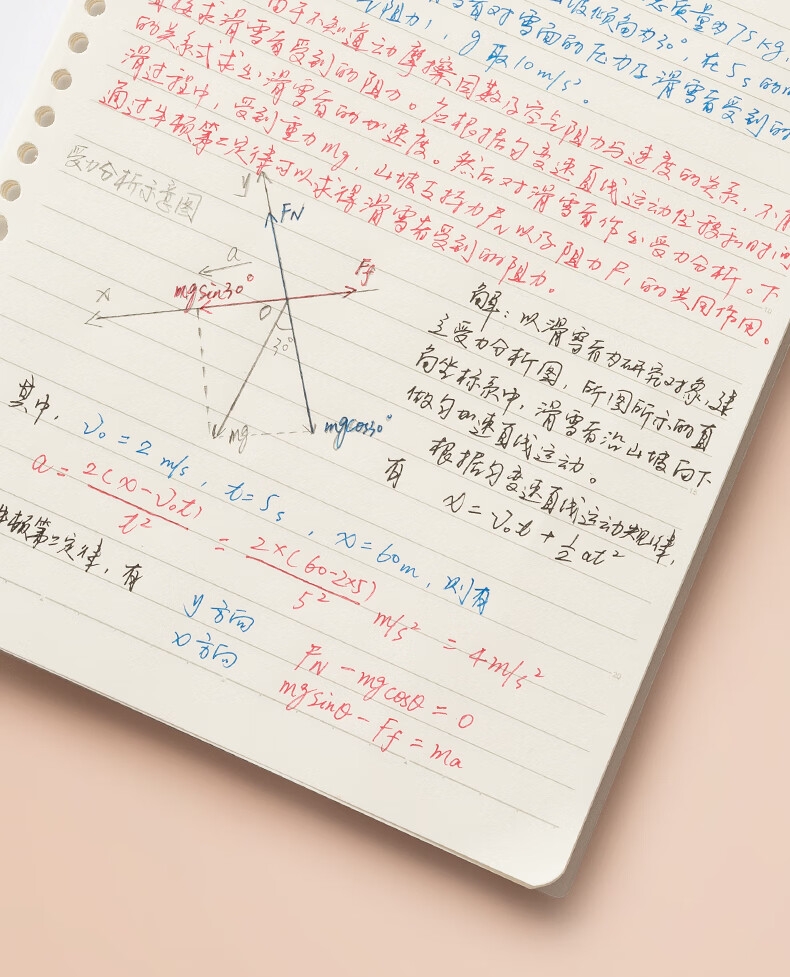 总质量为75kg,
山坡倾角为30°,在5s的时
有对雪面的压力及滑雪者受到的
阻力),g取10m/s²。
由于不知道动摩擦因数及空气阻力与速度的关系,不
直接求滑雪者受到的阻力。应根据匀变速直线运动位移和时间
的关系式求出滑雪者的加速度。然后对滑雪者作出受力分析。下
滑过程中,受到重力mg,山坡支持力FN以及阻力Ff的共同作用。
通过牛顿第二定律可以求得滑雪者受到的阻力。
受力分析示意图
y
FN
a
Ff
mgsin30°
x
O
30°
mg
mgcos30°
解:以滑雪者为研究对象,建
立受力分析图,所图所示的直
角坐标系中,滑雪者沿山坡向下
做匀加速直线运动。
根据匀变速直线运动规律,
有 x=v₀t+½at²
其中,v₀=2m/s,t=5s,x=60m,则有
a=2(x-v₀t)/t²=2×(60-2×5)/5² m/s²=4m/s²
牛顿第二定律,有
y方向 FN-mgcosθ=0
x方向 mgsinθ-Ff=ma